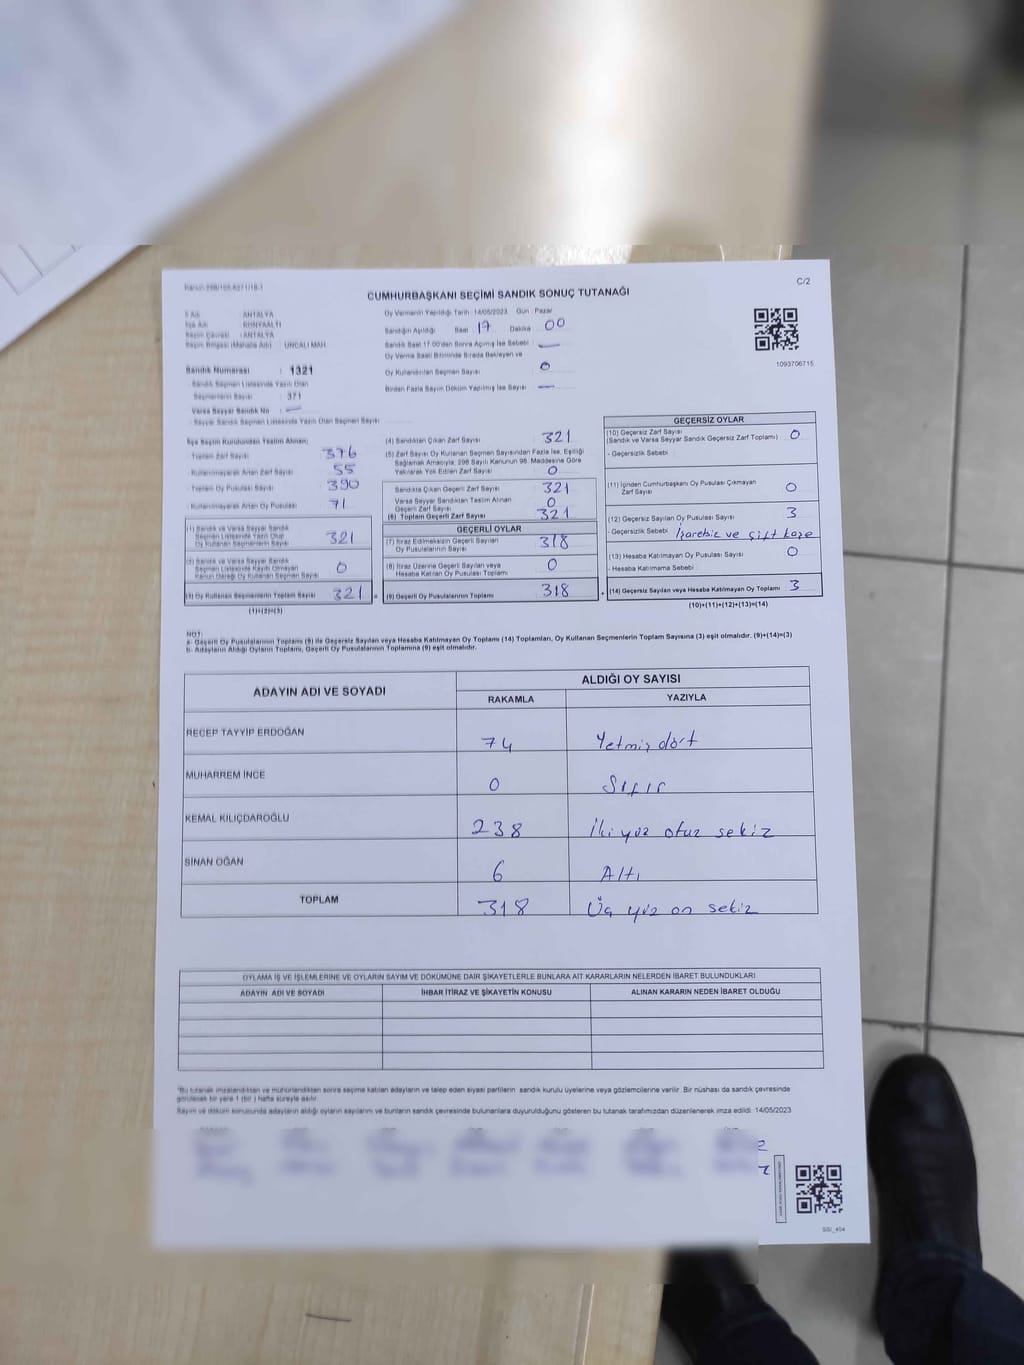 C/2
CUMHURBAŞKANI SEÇİMİ SANDIK SONUÇ TUTANAĞI
1093706715
İl Adı : ANTALYA
İlçe Adı : KONYAALTI
Seçim Çevresi : ANTALYA
Seçim Bölgesi (Mahalle Adı) : UNCALI MAH.
Sandık Numarası : 1321
Sandık Seçmen Listesinde Yazılı Olan
Seçmenlerin Sayısı : 371
Varsa Seyyar Sandık No : —
Seyyar Sandık Seçmen Listesinde Yazılı Olan Seçmen Sayısı :
Oy Vermenin Yapıldığı Tarih :14/05/2023 Gün : Pazar
Sandığın Açıldığı Saat 17 Dakika 00
Sandık Saat 17:00'den Sonra Açılmış İse Sebebi : —
Oy Verme Saati Bitiminde Sırada Bekleyen ve
Oy Kullandırılan Seçmen Sayısı : 0
Birden Fazla Sayım Döküm Yapılmış İse Sayısı : —
İlçe Seçim Kurulundan Teslim Alınan;
Toplam Zarf Sayısı : 376
Kullanılmayarak Artan Zarf Sayısı : 55
Toplam Oy Pusulası Sayısı : 390
Kullanılmayarak Artan Oy Pusulası : 71
(1) Sandık ve Varsa Seyyar Sandık
Seçmen Listesinde Yazılı Olup
Oy Kullanan Seçmenlerin Sayısı : 321
(2) Sandık ve Varsa Seyyar Sandık
Seçmen Listesinde Kaydı Olmayan
Kanun Gereği Oy Kullanan Seçmen Sayısı : 0
(3) Oy Kullanan Seçmenlerin Toplam Sayısı : 321
(1)+(2)=(3)
(4) Sandıktan Çıkan Zarf Sayısı : 321
(5) Zarf Sayısı Oy Kullanan Seçmen Sayısından Fazla İse, Eşitliği
Sağlamak Amacıyla, 298 Sayılı Kanunun 98. Maddesine Göre
Yakılarak Yok Edilen Zarf Sayısı : 0
Sandıkta Çıkan Geçerli Zarf Sayısı : 321
Varsa Seyyar Sandıktan Teslim Alınan
Geçerli Zarf Sayısı : 0
(6) Toplam Geçerli Zarf Sayısı : 321
GEÇERLİ OYLAR
(7) İtiraz Edilmeksizin Geçerli Sayılan
Oy Pusulalarının Sayısı : 318
(8) İtiraz Üzerine Geçerli Sayılan veya
Hesaba Katılan Oy Pusulası Toplamı : 0
(9) Geçerli Oy Pusulalarının Toplamı : 318
GEÇERSİZ OYLAR
(10) Geçersiz Zarf Sayısı
(Sandık ve Varsa Seyyar Sandık Geçersiz Zarf Toplamı) : 0
- Geçersizlik Sebebi :
(11) İçinden Cumhurbaşkanı Oy Pusulası Çıkmayan
Zarf Sayısı : 0
(12) Geçersiz Sayılan Oy Pusulası Sayısı : 3
- Geçersizlik Sebebi : İşaretsiz ve çift kaşe
(13) Hesaba Katılmayan Oy Pusulası Sayısı : 0
- Hesaba Katılmama Sebebi :
(14) Geçersiz Sayılan veya Hesaba Katılmayan Oy Toplamı : 3
(10)+(11)+(12)+(13)=(14)
NOT:
a- Geçerli Oy Pusulalarının Toplamı (9) ile Geçersiz Sayılan veya Hesaba Katılmayan Oy Toplamı (14) Toplamları, Oy Kullanan Seçmenlerin Toplam Sayısına (3) eşit olmalıdır. (9)+(14)=(3)
b- Adayların Aldığı Oyların Toplamı, Geçerli Oy Pusulalarının Toplamına (9) eşit olmalıdır.
ADAYIN ADI VE SOYADI ALDIĞI OY SAYISI
RAKAMLA YAZIYLA
RECEP TAYYİP ERDOĞAN 74 Yetmiş dört
MUHARREM İNCE 0 Sıfır
KEMAL KILIÇDAROĞLU 238 İki yüz otuz sekiz
SİNAN OĞAN 6 Altı
TOPLAM 318 Üç yüz on sekiz
OYLAMA İŞ VE İŞLEMLERİNE VE OYLARIN SAYIM VE DÖKÜMÜNE DAİR ŞİKAYETLERLE BUNLARA AİT KARARLARIN NELERDEN İBARET BULUNDUKLARI
ADAYIN ADI VE SOYADI İHBAR İTİRAZ VE ŞİKAYETİN KONUSU ALINAN KARARIN NEDEN İBARET OLDUĞU
*Bu tutanak imzalandıktan ve mühürlendikten sonra seçime katılan adayların ve talep eden siyasi partilerin sandık kurulu üyelerine veya gözlemcilerine verilir. Bir nüshası da sandık çevresinde
görülecek bir yere 1 (bir) hafta süreyle asılır.
Sayım ve döküm sonucunda adayların aldığı oyların sayılarını ve bunların sandık çevresinde bulunanlara duyurulduğunu gösteren bu tutanak tarafımızdan düzenlenerek imza edildi. 14/05/2023
SSI_404